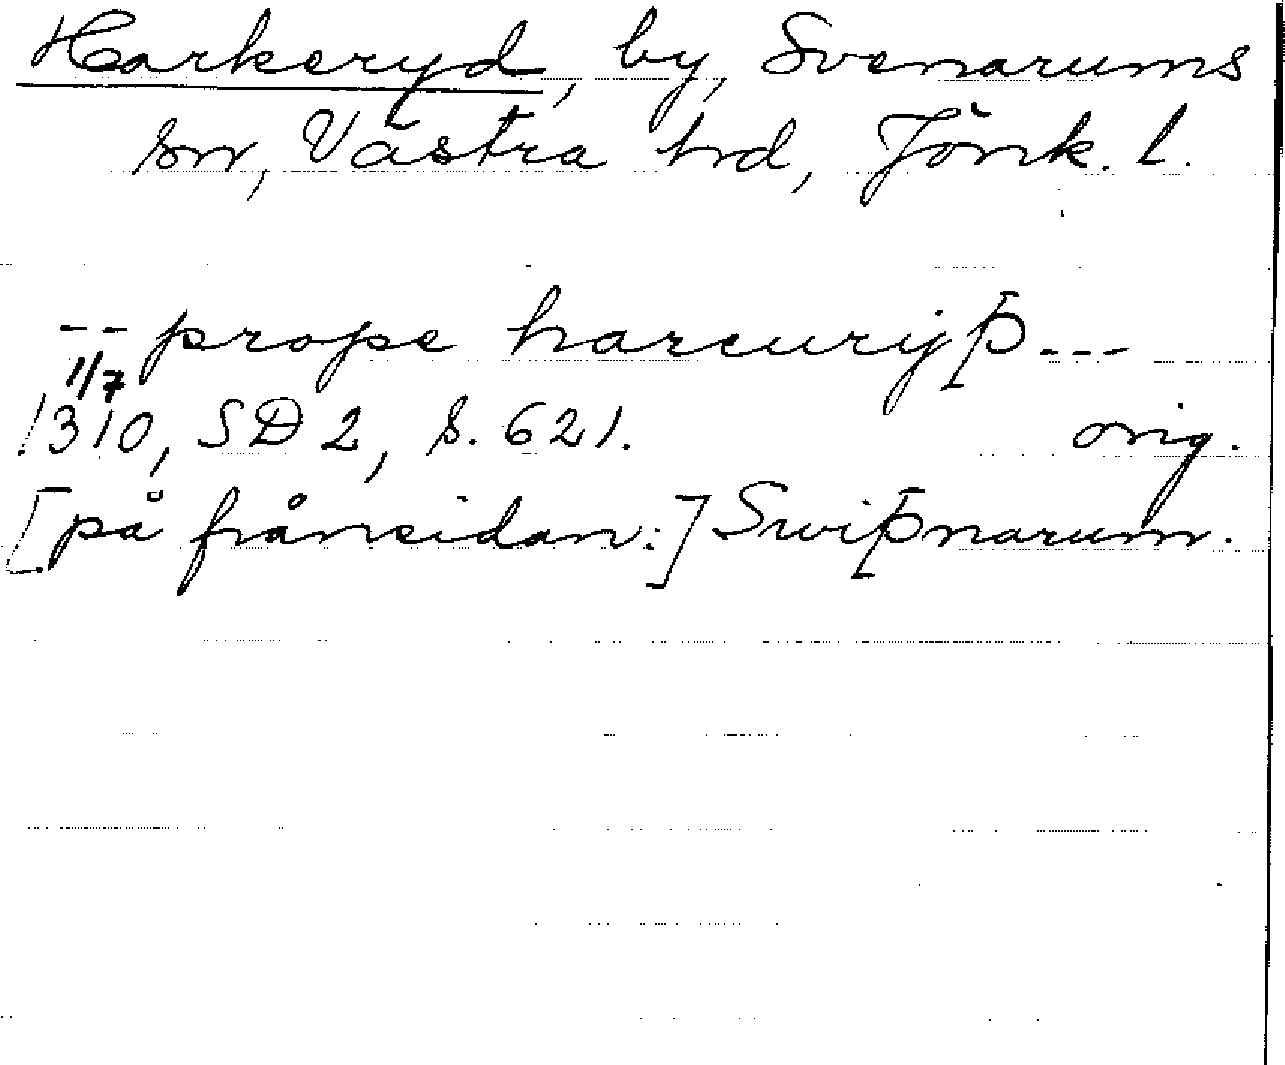 Harkeryd, by, Svenarums
sn, Västra hd, Jönk. l.
-- prope harcurijþ ---
1/7
1310, SD 2, s. 621. orig.
[på frånsidan:] Swiþnarum.